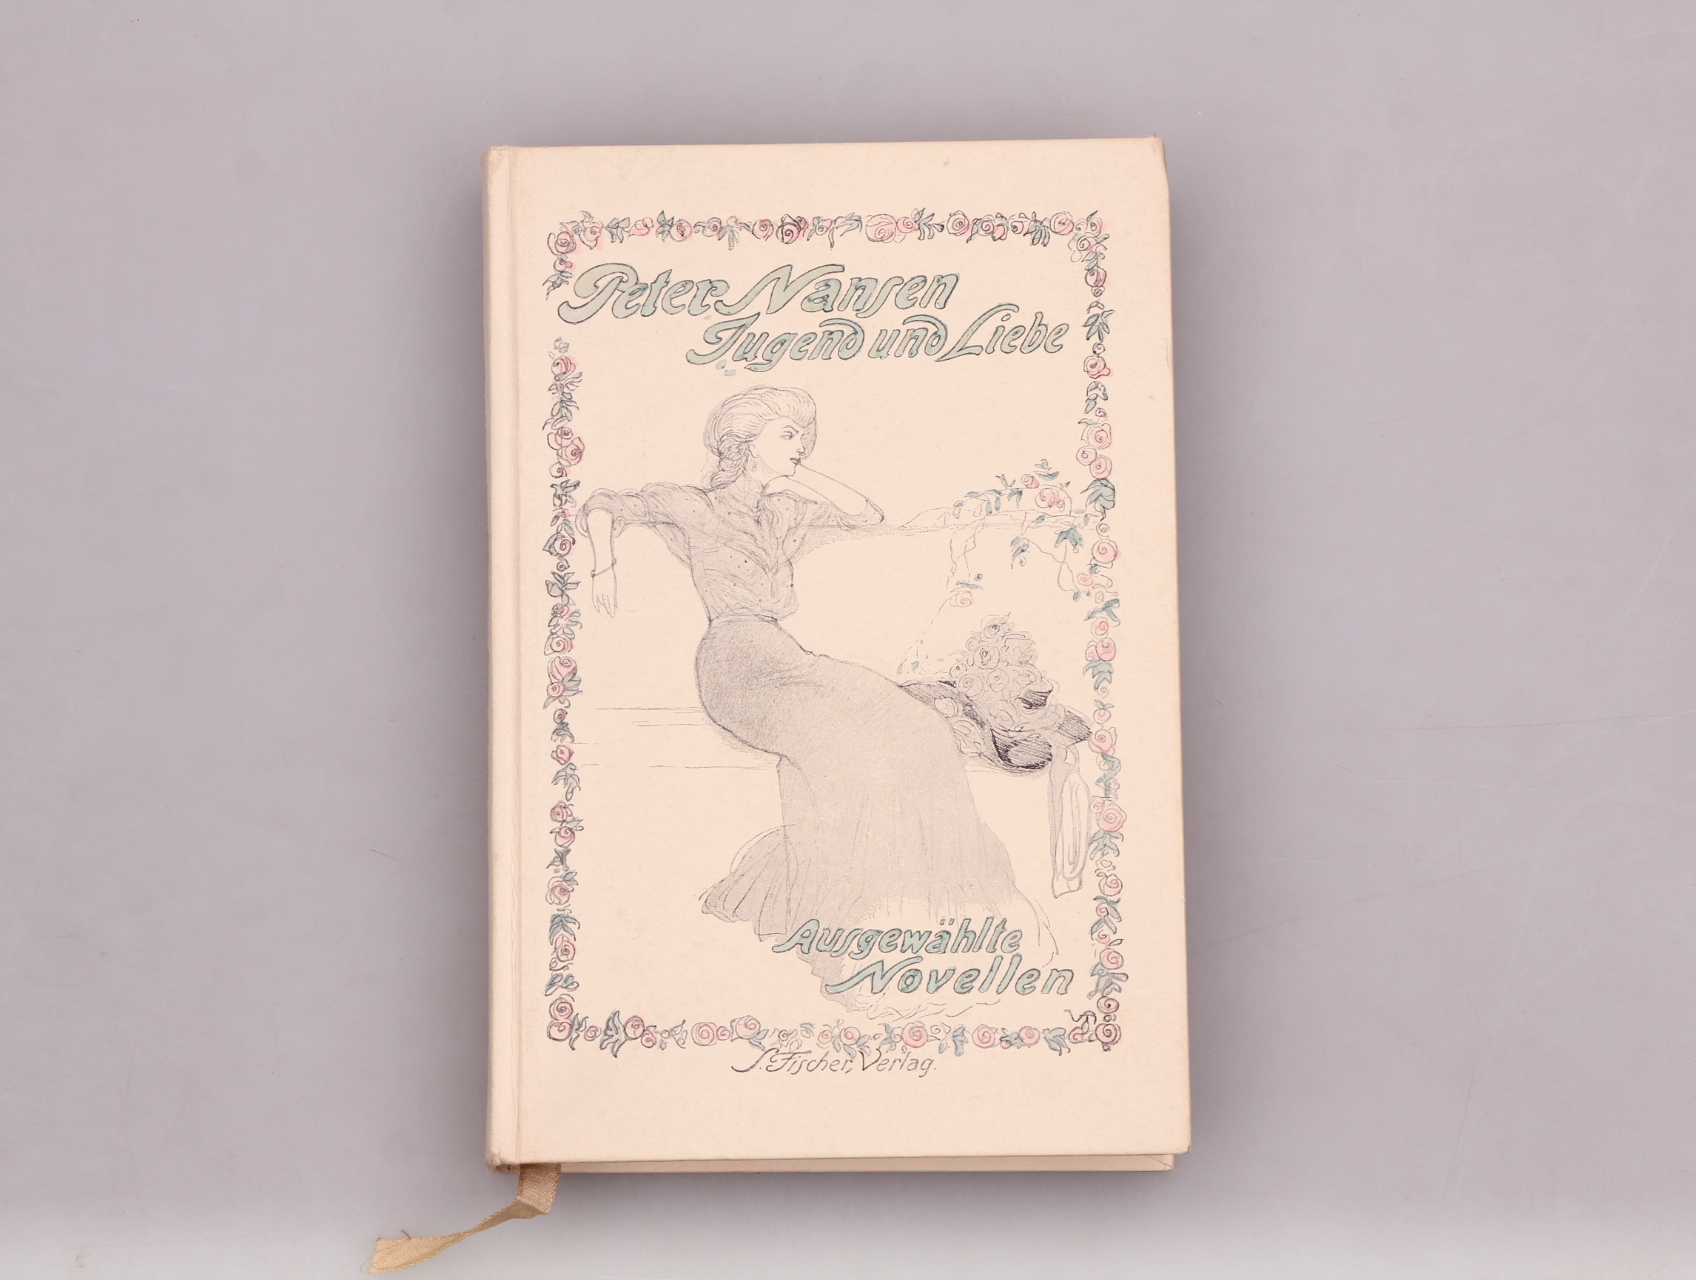 Peter Nansen
Jugend und Liebe
Ausgewählte
Novellen
S. Fischer, Verlag.